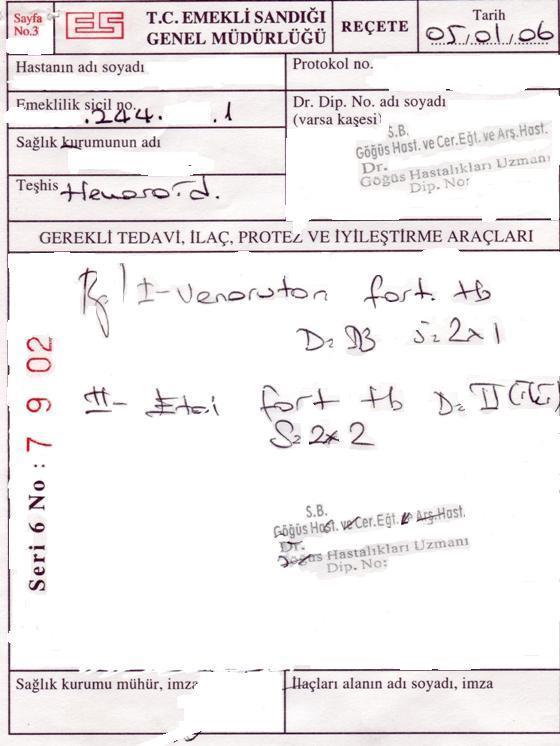 Sayfa
No.3
ES
T.C. EMEKLİ SANDIĞI
GENEL MÜDÜRLÜĞÜ
REÇETE
Tarih
05/01/06
Hastanın adı soyadı
Protokol no.
Emeklilik sicil no.
.244. .1
Dr. Dip. No. adı soyadı
(varsa kaşesi)
S.B.
Göğüs Hast. ve Cer.Eğt. ve Arş.Hast.
Dr.
Göğüs Hastalıkları Uzmanı
Dip. No:
Sağlık kurumunun adı
Teşhis Hemoroid.
GEREKLİ TEDAVİ, İLAÇ, PROTEZ VE İYİLEŞTİRME ARAÇLARI
Rp/ I- Venoruton fort. tb
D= S= 2x1
II- fort tb D= II (iki)
S= 2x2
Seri 6 No : 7 9 02
S.B.
Göğüs Hast. ve Cer.Eğt. Arş.Hast.
Dr.
Göğüs Hastalıkları Uzmanı
Dip. No:
Sağlık kurumu mühür, imza
İlaçları alanın adı soyadı, imza